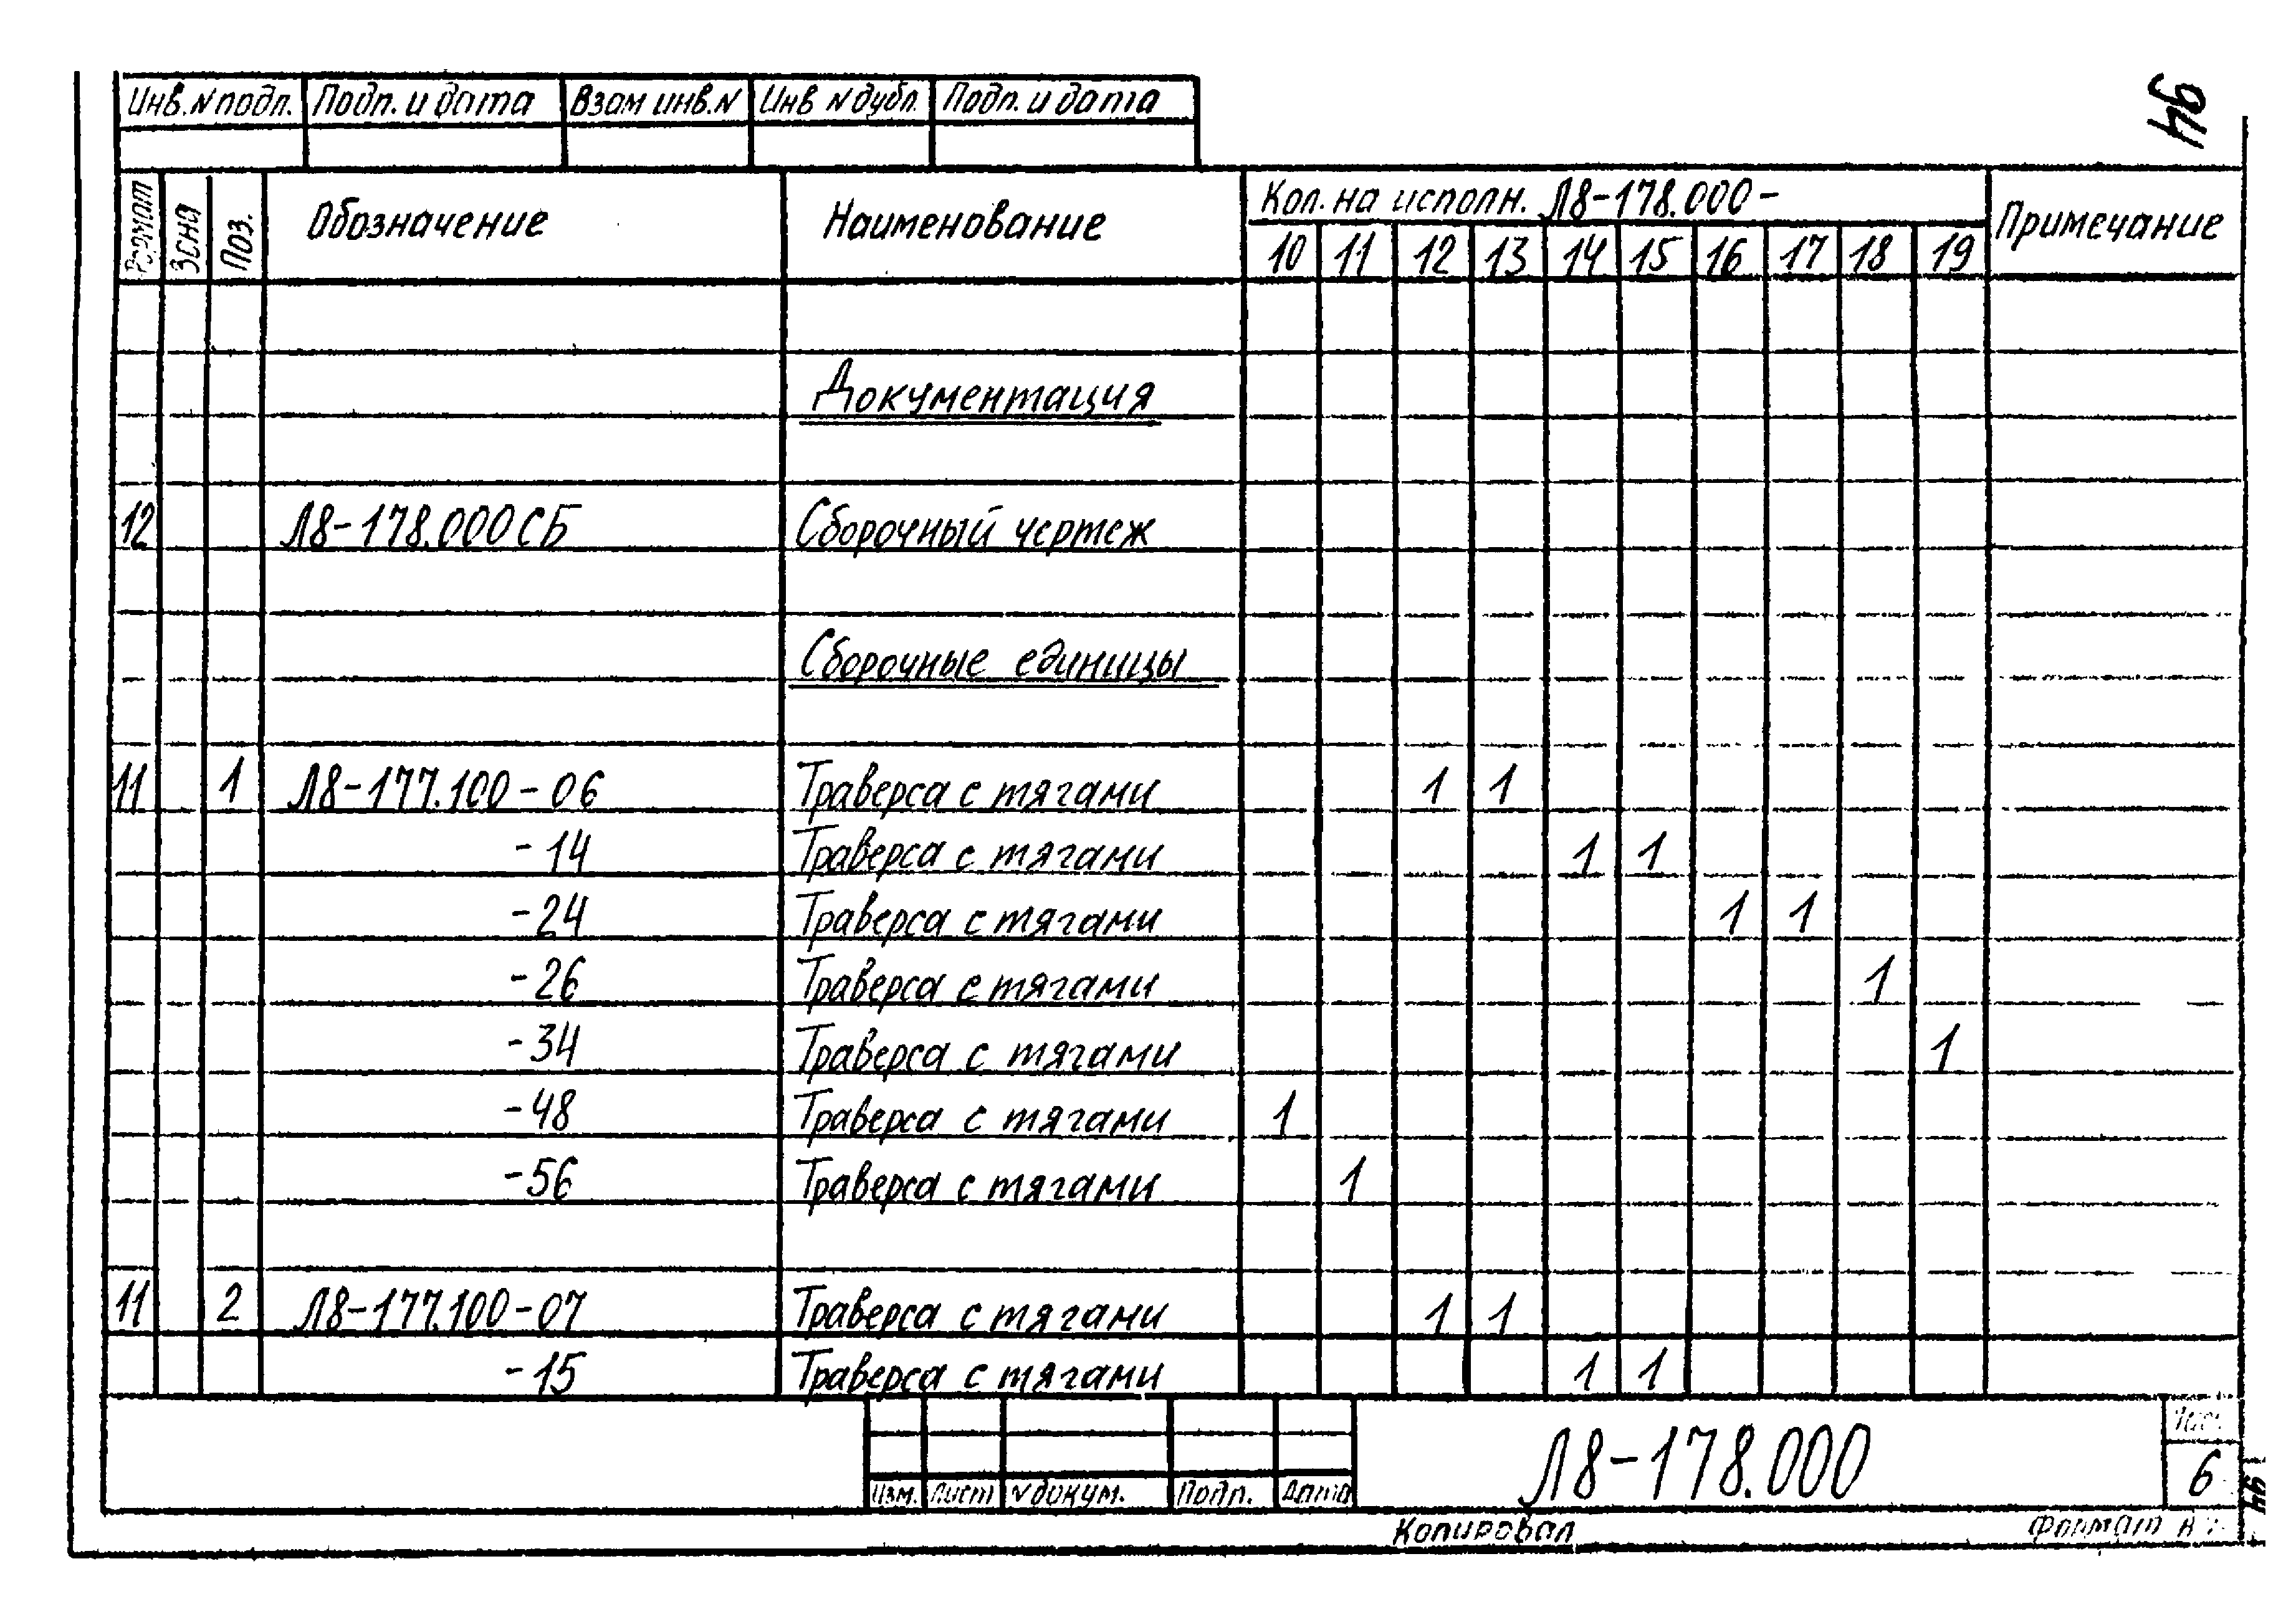 94
Инв. N подл. Подп. и дата Взам инв. N Инв N дубл. Подп. и дата
Формат Зона Поз. Обозначение Наименование Кол. на исполн. Л8-178.000- Примечание
10 11 12 13 14 15 16 17 18 19
Документация
12 Л8-178.000 СБ Сборочный чертеж
Сборочные единицы
11 1 Л8-177.100-06 Траверса с тягами 1 1
-14 Траверса с тягами 1 1
-24 Траверса с тягами 1 1
-26 Траверса с тягами 1
-34 Траверса с тягами 1
-48 Траверса с тягами 1
-56 Траверса с тягами 1
11 2 Л8-177.100-07 Траверса с тягами 1 1
-15 Траверса с тягами 1 1
Изм. Лист N докум. Подп. Дата
Л8-178.000
Лист
6
94
Копировал Формат